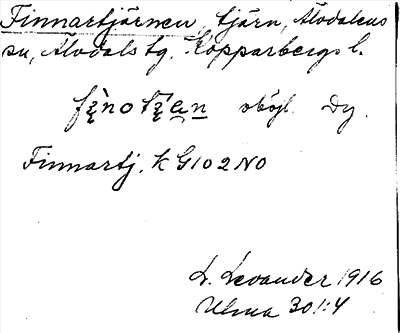 Finnartjärnen, tjärn, Älvdalens
sn, Älvdals tg. Kopparbergs l.
obögl. Dy.
Finnartj. K G102NO
L. Levander 1916
Ulma 301:4